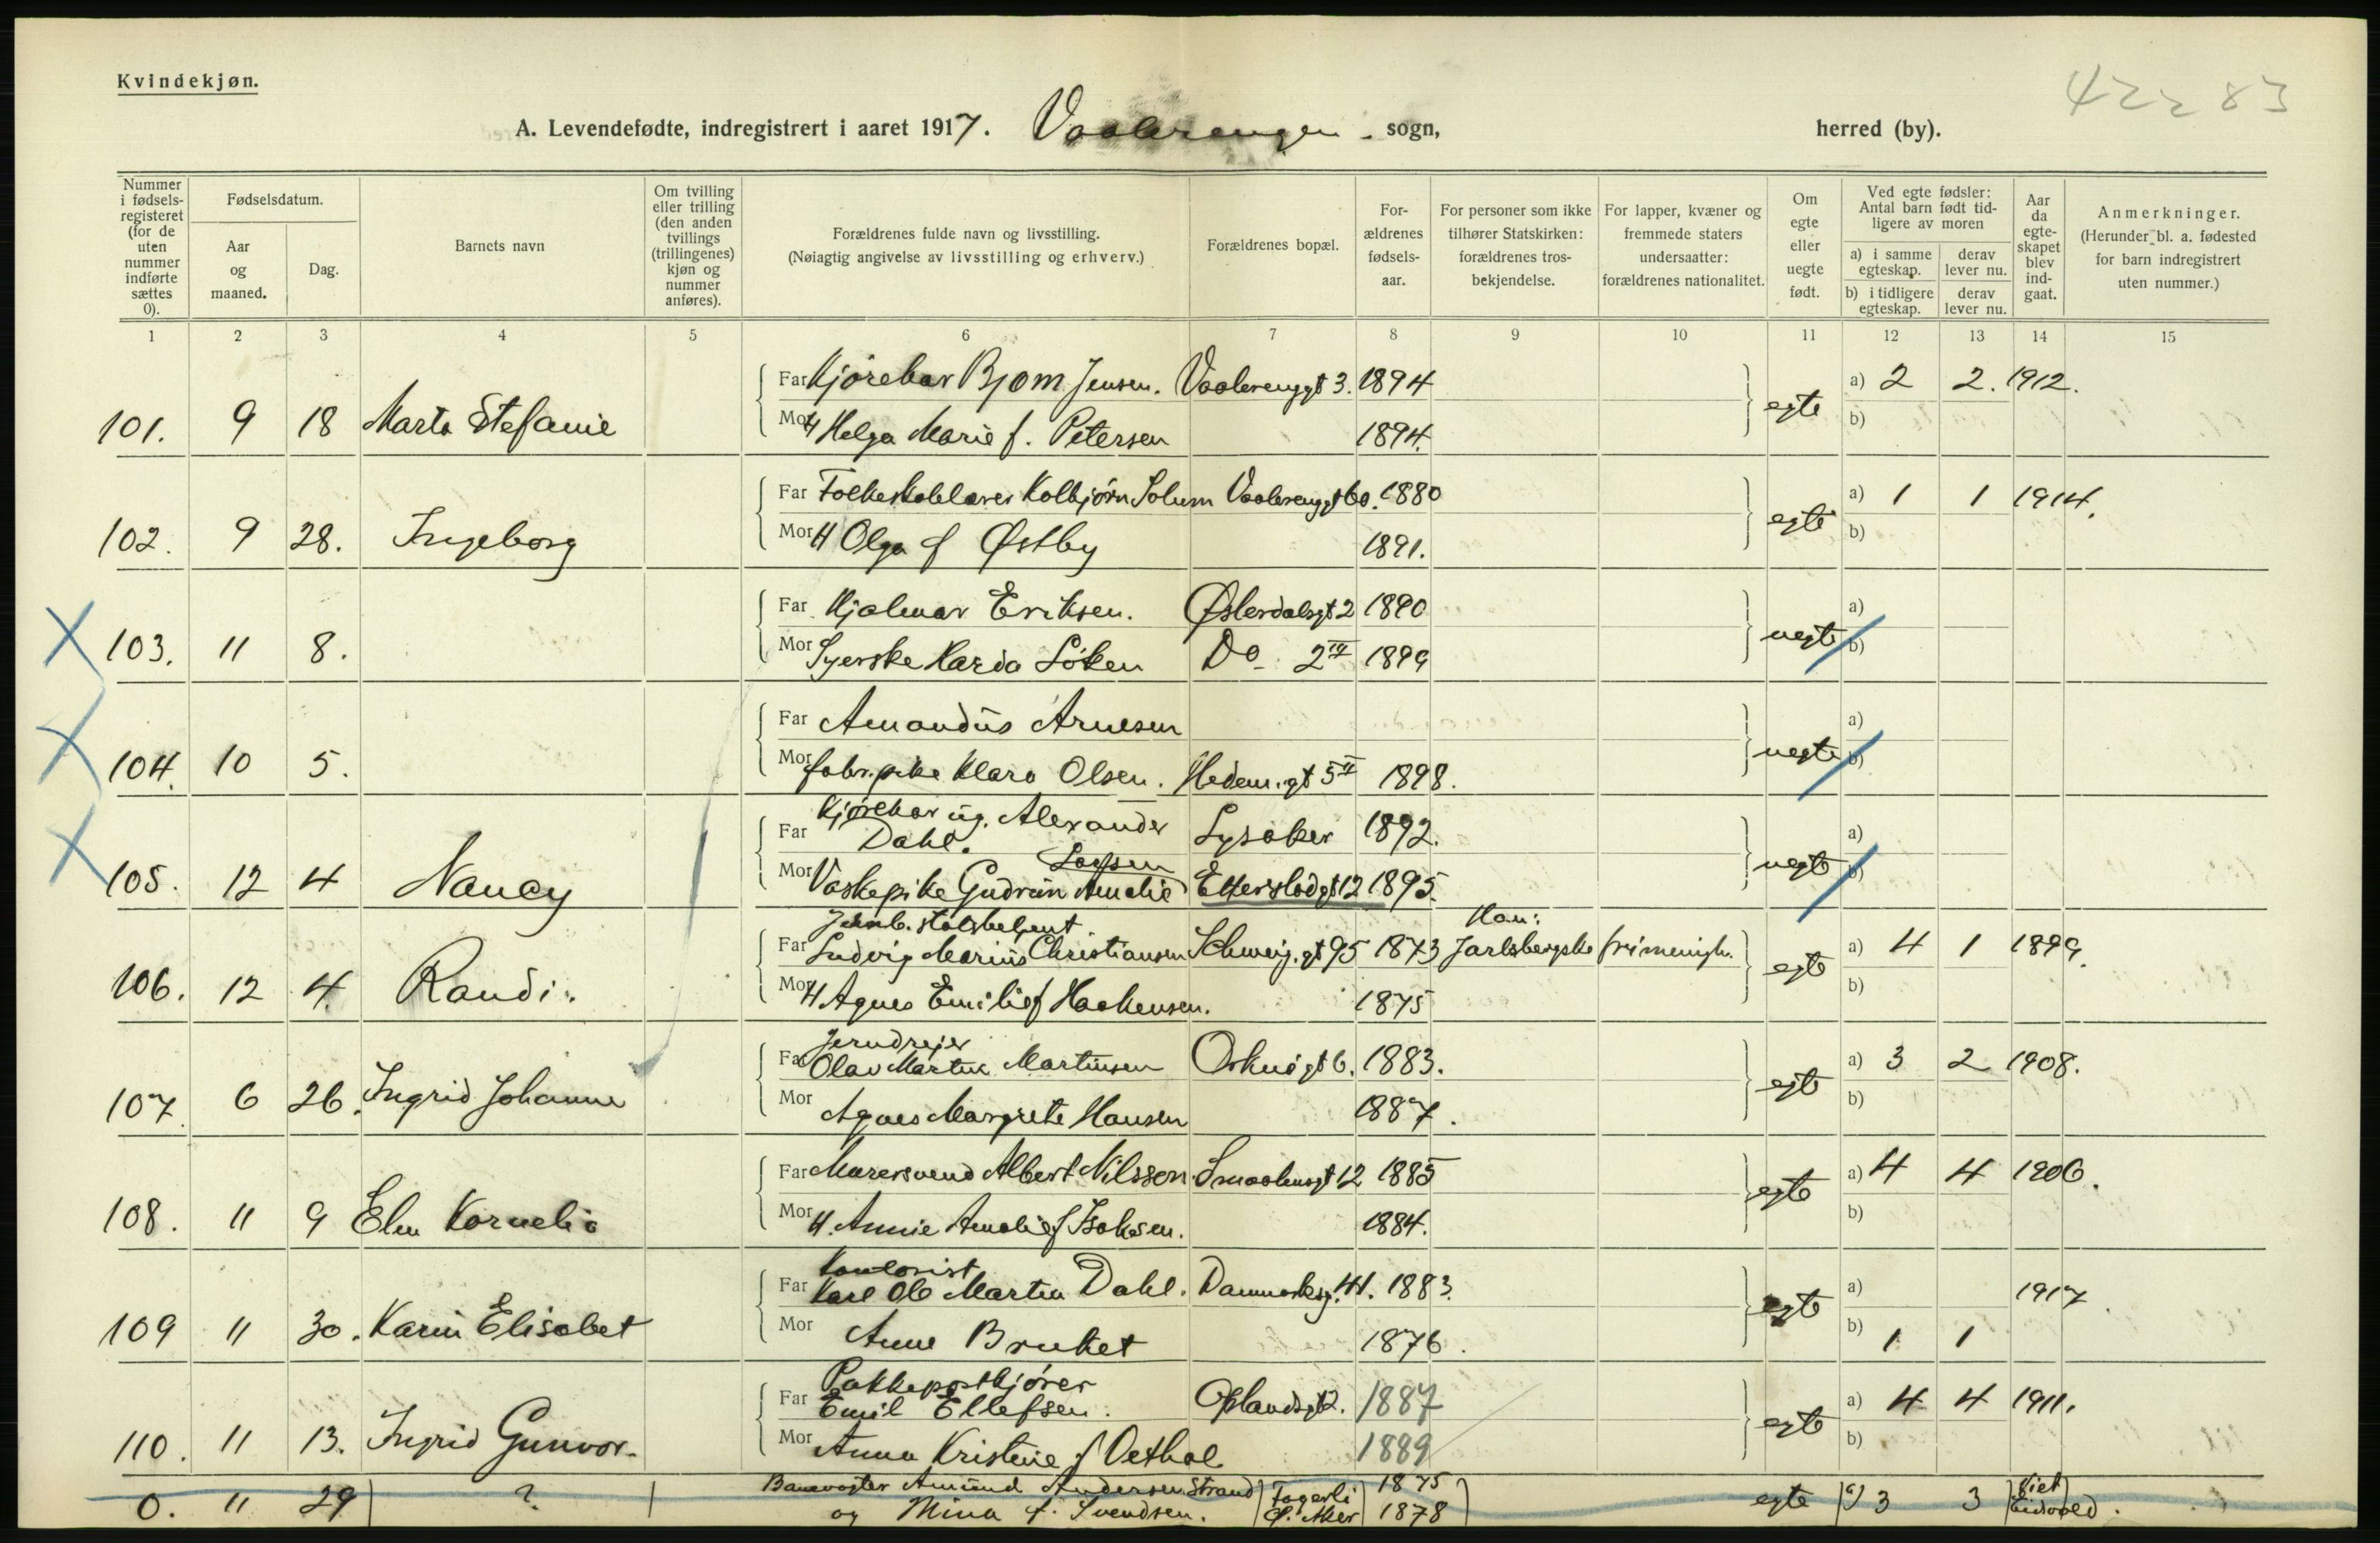 Kvindekjøn.
42283
A. Levendefødte, indregistrert i aaret 1917. Vaalerengen sogn, herred (by).
Nummer i fødsels-registeret (for de uten nummer indførte sættes 0).
Fødselsdatum.
Aar og maaned.
Dag.
Barnets navn
Om tvilling eller trilling (den anden tvillings (trillingenes) kjøn og nummer anføres).
Forældrenes fulde navn og livsstilling.
(Nøiagtig angivelse av livsstilling og erhverv.)
Forældrenes bopæl.
For-ældrenes fødsels-aar.
For personer som ikke tilhører Statskirken: forældrenes tros-bekjendelse.
For lapper, kvæner og fremmede staters undersaatter: forældrenes nationalitet.
Om egte eller uegte født.
Ved egte fødsler: Antal barn født tid-ligere av moren
a) i samme egteskap.
derav lever nu.
b) i tidligere egteskap.
derav lever nu.
Aar da egte-skapet blev ind-gaat.
Anmerkninger.
(Herunder bl. a. fødested for barn indregistrert uten nummer.)
1 2 3 4 5 6 7 8 9 10 11 12 13 14 15
Far Kjørekar Bjørn Jensen. Vaalerenggt 3. 1894 a) 2 2. 1912.
101. 9 18 Marta Stefanie egte
Mor H Helga Marie f. Petersen 1894. b)
Far Folkeskolelærer Kolbjørn Solum Vaalerenggt 60. 1880 a) 1 1 1914.
102. 9 28. Ingeborg egte
Mor H Olga f Østby 1891. b)
Far Hjalmar Eriksen. Østerdalsgt 2 1890 a)
103. 11 8. uegte
Mor Syerske Karda Løken Do 2 IV 1899 b)
Far Amandus Arnesen a)
104. 10 5. uegte
Mor fabr.pike Klara Olsen. Hedem.gt 5 II 1898. b)
Kjørekar ug. Alexander
Far Dahl. Lysaker 1892. a)
105. 12 4 Nancy uegte
Larsen
Mor Vaskepike Gudrun Amalie Etterstadgt 12 1895. b)
Jernb.
Far Ludvig Marius Christiansen Schweig.gt 95 1873 Han: Jarlsbergske frimenigh. a) 4 1 1899.
106. 12 4. Randi. egte
Mor H Agnes Emilie f Haakensen. 1875 b)
Jerndreier
Far Olav Martin Martinsen 6. 1883. a) 3 2 1908.
107. 6 26. Ingrid Johanne egte
Mor Agnes Margrete Hansen 1887. b)
Far Murersvend Albert Nilssen. Smaalensgt 12 1885 a) 4 4 1906.
108. 11 9 Elen Kornelia egte
Mor H. Annie Amalie f Isaksen. 1884. b)
Kontorist
Far Karl Ole Martin Dahl. Danmarksg. 41. 1883. a) 1917.
109 11 30. Karin Elisabet egte
Mor Anne Bruket 1876. b) 1 1
Pakkepostkjører
Far Emil Ellefsen. Oplandsgt 2. 1887 a) 4 4 1911.
110. 11 13. Ingrid Gunvor. egte
Mor Anna Kristine f Oethol 1889 b)
0. 11 29 ? Banevogter Amund Andersen Strand Fagerli 1875 egte a) 3 3 Viet
og Mina f. Svendsen. Ø. Aker 1878 Eidsvold.